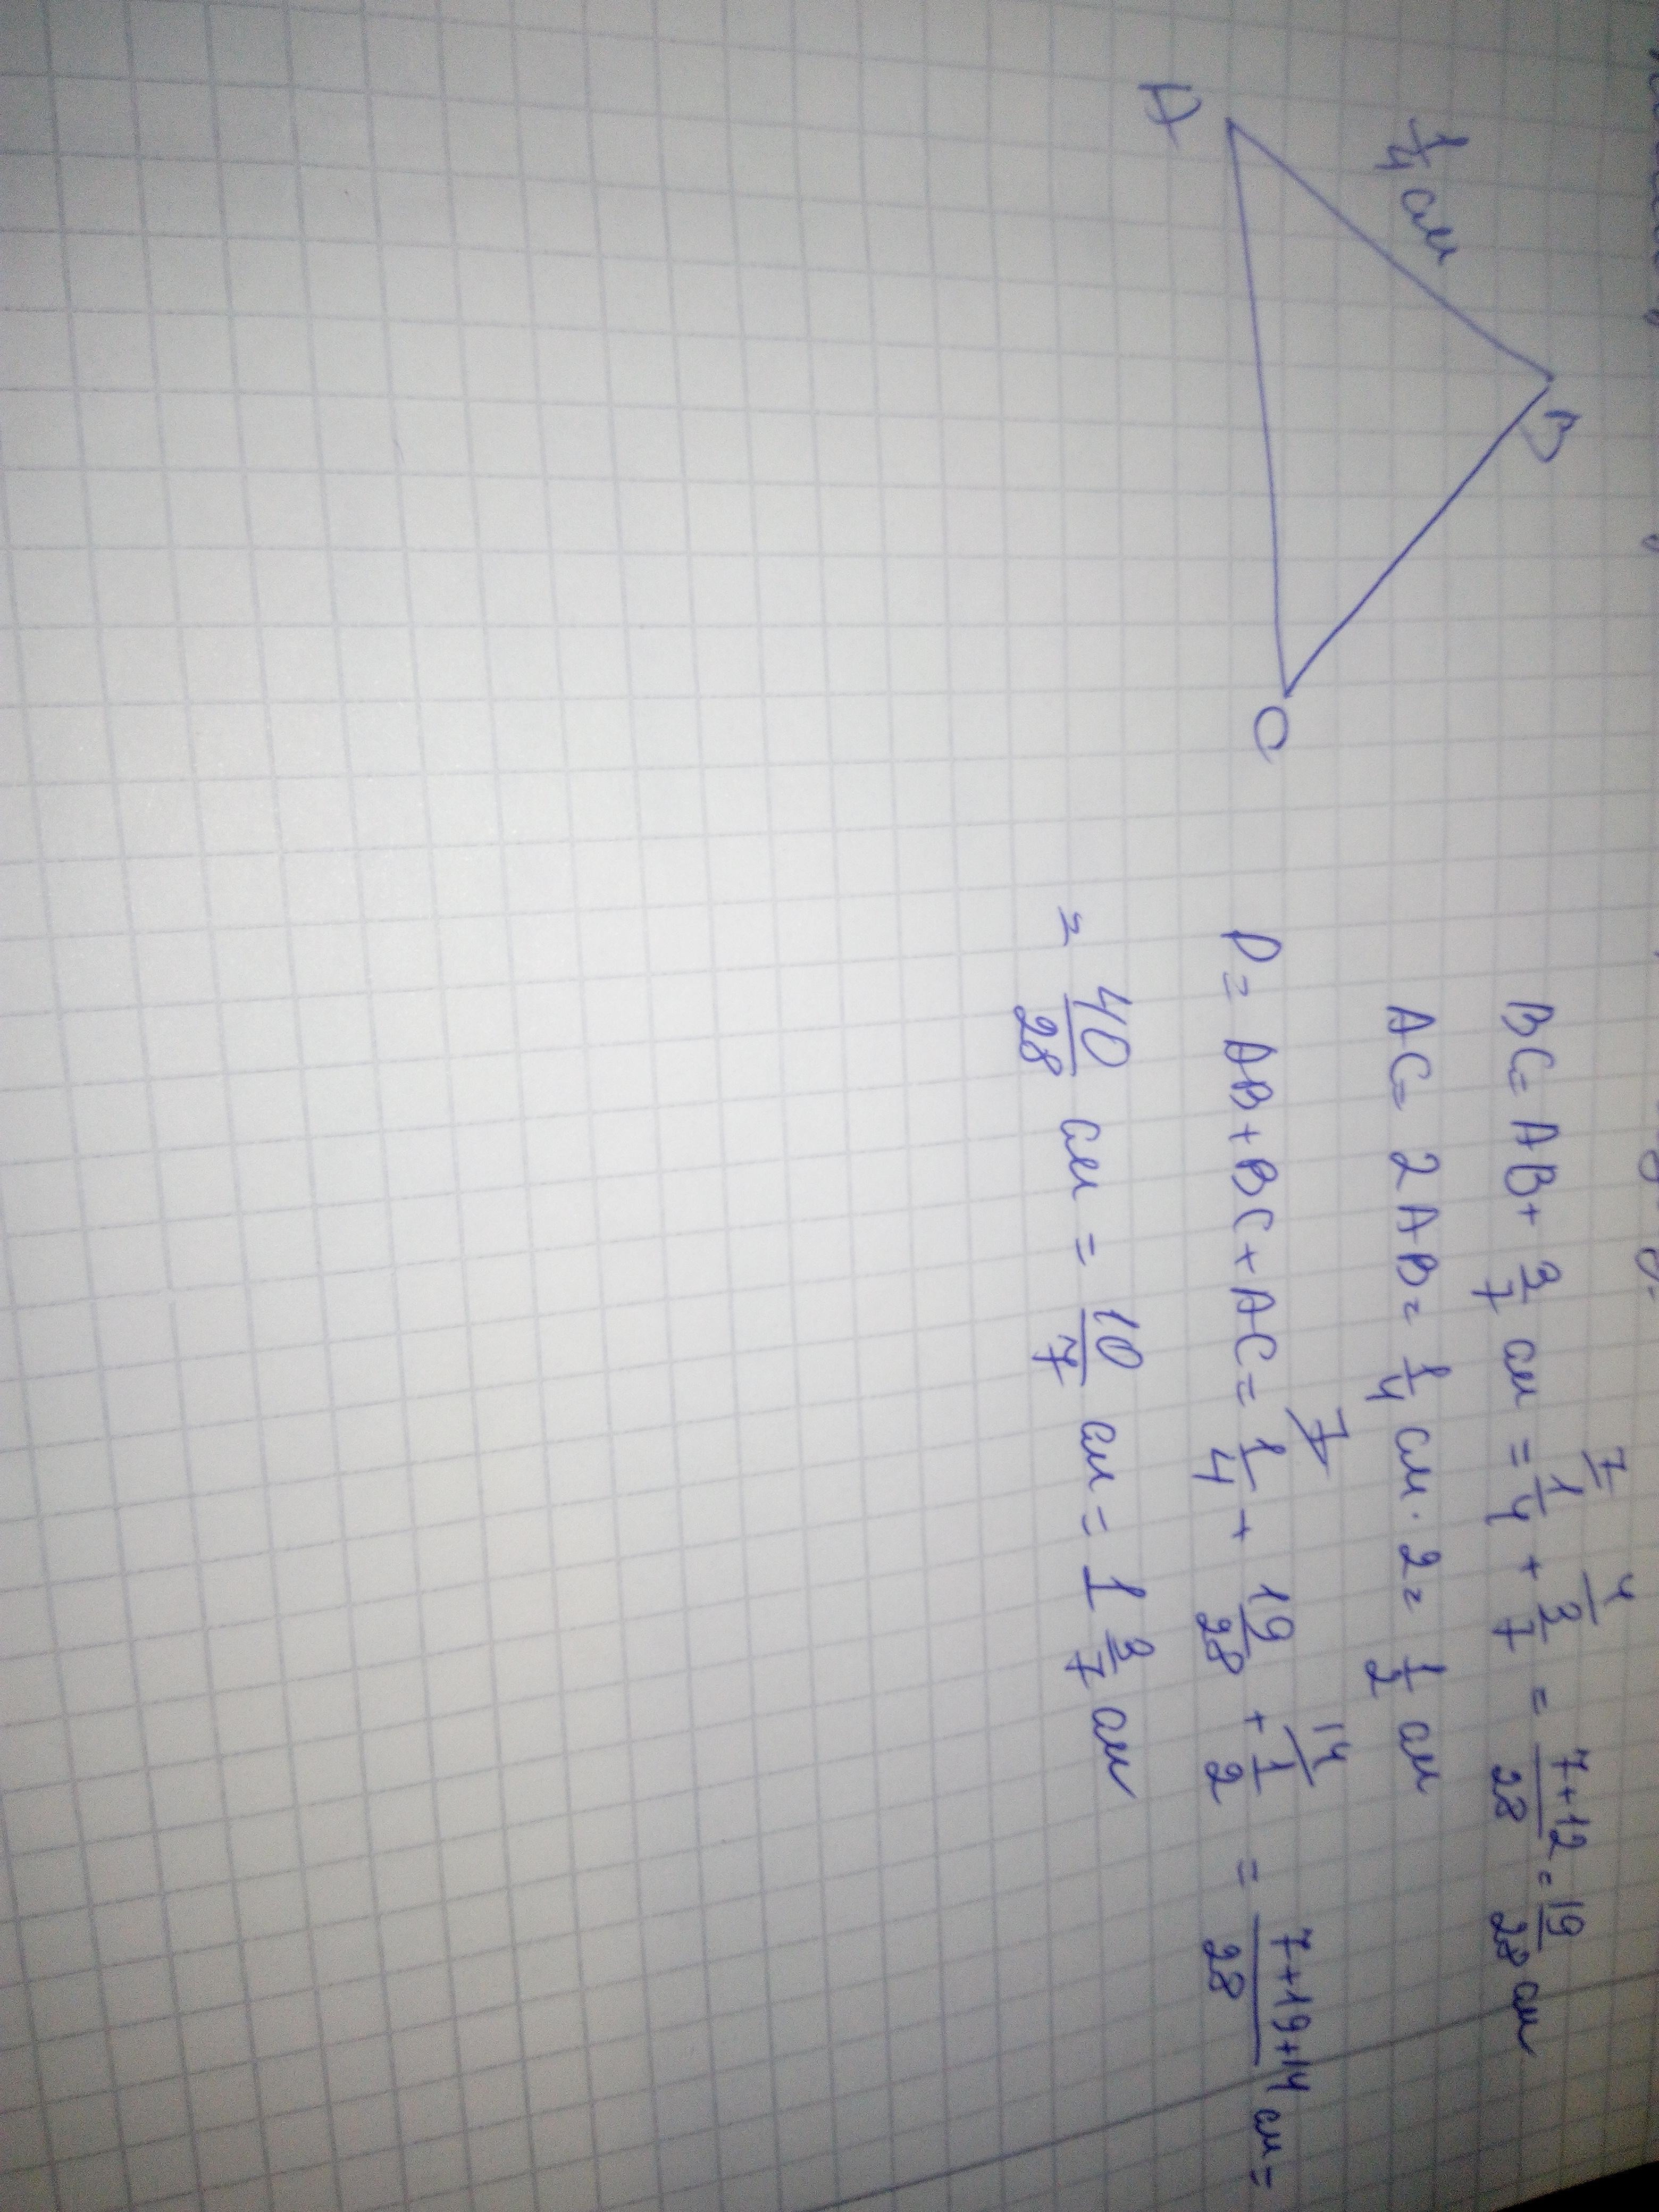 B
1/4 см
A
C
BC = AB + 3/7 см = 1/4 (7 + 3/7 (4 = 7+12/28 = 19/28 см
AC = 2AB = 1/4 см · 2 = 1/2 см
P = AB + BC + AC = 1/4 (7 + 19/28 + 1/2 (14 = 7+19+14/28 см =
= 40/28 см = 10/7 см = 1 3/7 см